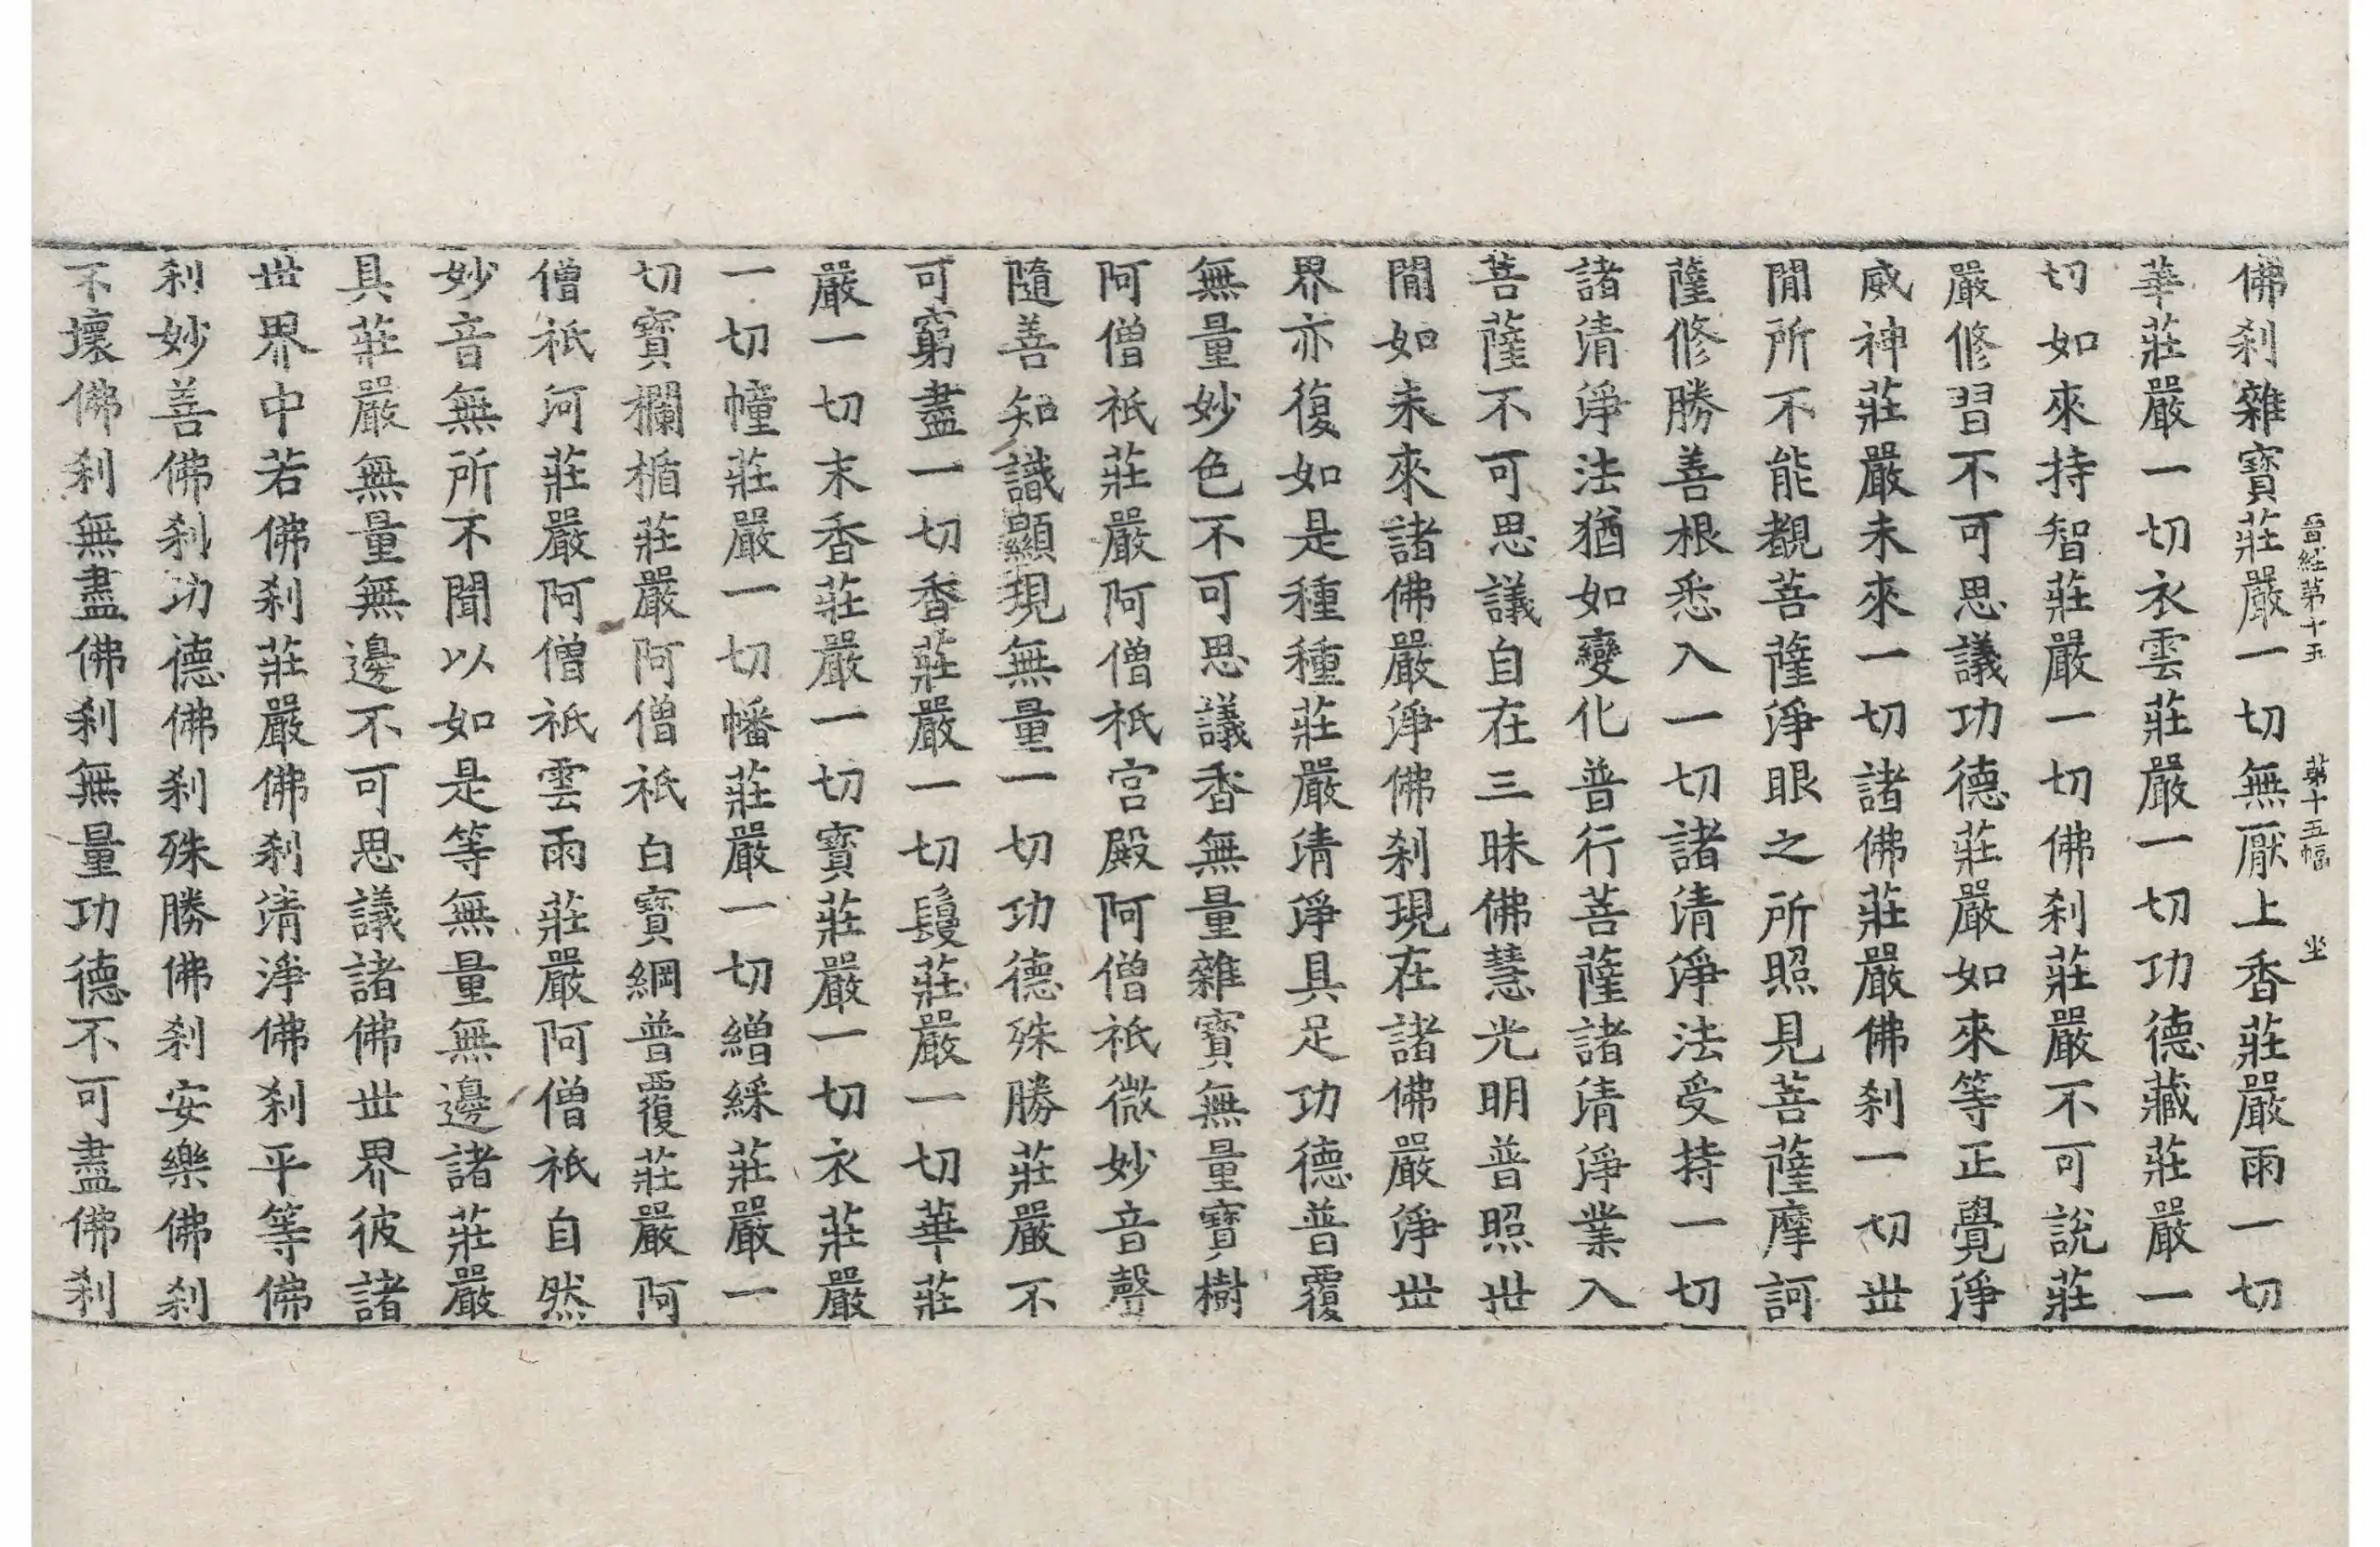 晉經第十五　第十五幅　坐
佛剎雜寶莊嚴一切無厭上香莊嚴雨一切
華莊嚴一切衣雲莊嚴一切功德藏莊嚴一
切如來持智莊嚴一切佛剎莊嚴不可說莊
嚴修習不可思議功德莊嚴如來等正覺淨
威神莊嚴未來一切諸佛莊嚴佛剎一切世
閒所不能覩菩薩淨眼之所照見菩薩摩訶
薩修勝善根悉入一切諸清淨法受持一切
諸清淨法猶如變化普行菩薩諸清淨業入
菩薩不可思議自在三昧佛慧光明普照世
閒如未來諸佛嚴淨佛剎現在諸佛嚴淨世
界亦復如是種種莊嚴清淨具足功德普覆
無量妙色不可思議香無量雜寶無量寶樹
阿僧祇莊嚴阿僧祇宮殿阿僧祇微妙音聲
隨善知識顯現無量一切功德殊勝莊嚴不
可窮盡一切香莊嚴一切鬘莊嚴一切華莊
嚴一切末香莊嚴一切寶莊嚴一切衣莊嚴
一切幢莊嚴一切幡莊嚴一切繒綵莊嚴一
切寶欄楯莊嚴阿僧祇白寶網普覆莊嚴阿
僧祇河莊嚴阿僧祇雲雨莊嚴阿僧祇自然
妙音無所不聞以如是等無量無邊諸莊嚴
具莊嚴無量無邊不可思議諸佛世界彼諸
世界中若佛剎莊嚴佛剎清淨佛剎平等佛
剎妙善佛剎功德佛剎殊勝佛剎安樂佛剎
不壞佛剎無盡佛剎無量功德不可盡佛剎